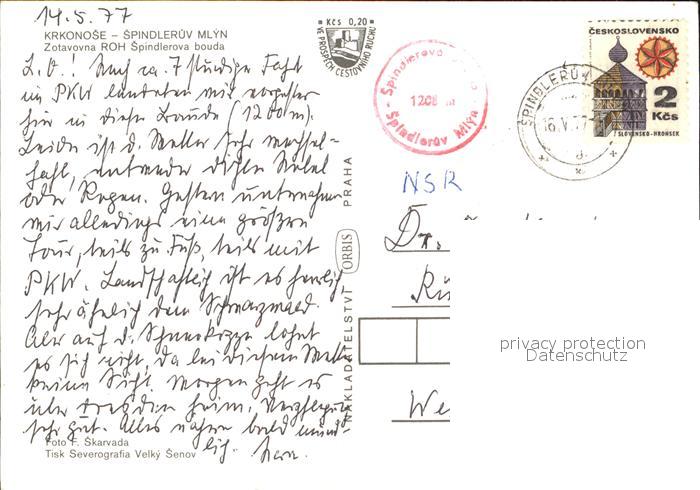 14.5.77
KRKONOŠE – ŠPINDLERŮV MLÝN
Zotavovna ROH Špindlerova bouda
L. O.! Nach ca. 7 stündiger Fahrt
im PKW landeten wir vorgestern
hier in dieser Baude (1200 m).
Leider ist d. Wetter sehr wechsel-
haft, entweder dichter Nebel
oder Regen. Gestern unternahmen
wir allerdings eine größere
Tour, teils zu Fuß, teils mit
PKW. Landschaftlich ist es herrlich
sehr ähnlich dem Schwarzwald
Aber auf d. Schneekoppe lohnt
es sich nicht, da bei diesem Wetter
keine Sicht. Morgen geht es
über Dresden heim. Verpflegung
sehr gut. Alles nähere bald münd-
lich.
Foto F. Škarvada
Tisk Severografia Velký Šenov
NAKLADATELSTVÍ ORBIS PRAHA
Kčs 0,20
VE PROSPĚCH CESTOVNÍHO RUCHU
Špindlerova
1208 m
Špindlerův Mlýn
ŠPINDLERŮV
16.V.77
ČESKOSLOVENSKO
2
Kčs
SLOVENSKO-HRONSEK
NSR
Dr.
We
privacy protection
Datenschutz